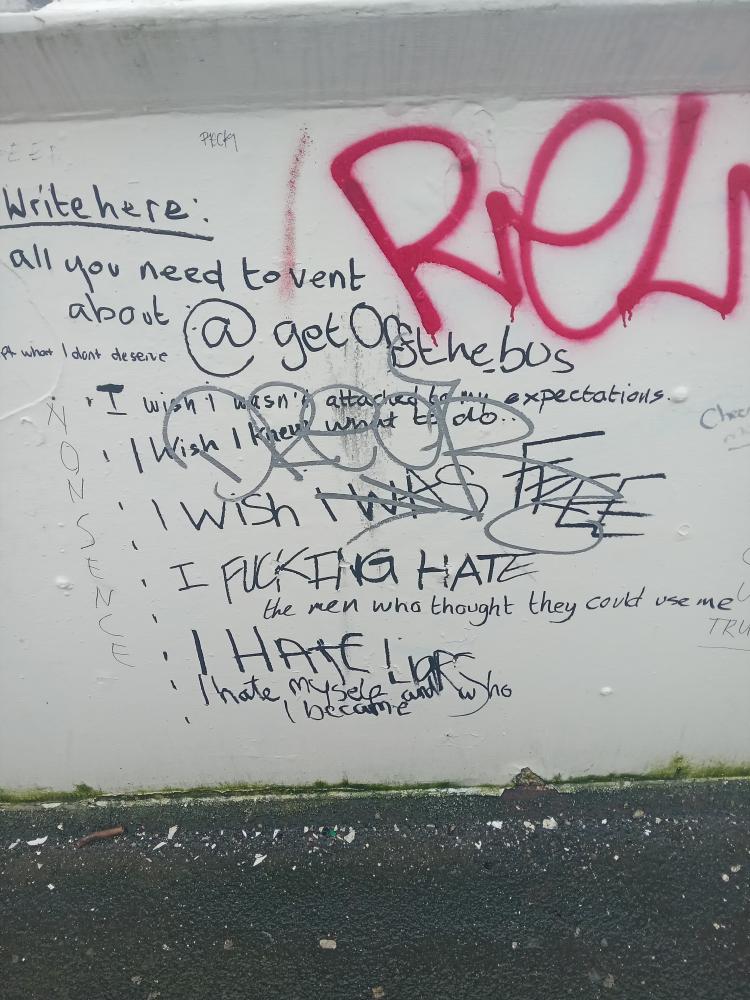 PECKY
Write here:
all you need to vent
about @ getOffthebus
what I dont deserve
I wish I wasn't attached to my expectations.
I Wish I knew what to do..
I WISH I WAS FREE
I FUCKING HATE
the men who thought they could use me
I HATE LIARS
I hate myself and who
I became
NONSENCE
REL
TRU